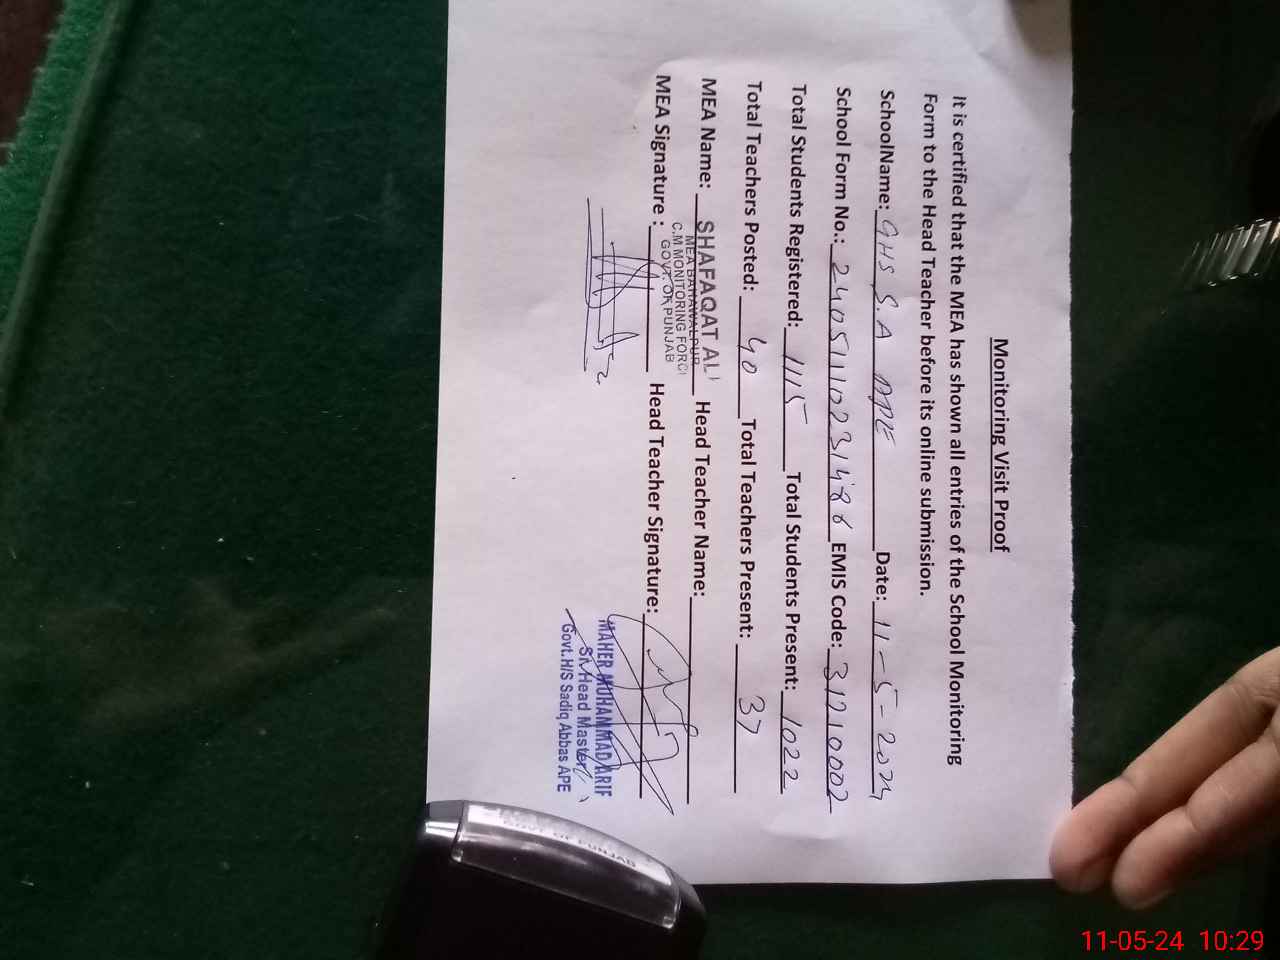 Monitoring Visit Proof
It is certified that the MEA has shown all entries of the School Monitoring
Form to the Head Teacher before its online submission.
SchoolName: GHS S.A APE Date: 11-5-2024
School Form No.: 24051110231486 EMIS Code: 31210002
Total Students Registered: 1115 Total Students Present: 1022
Total Teachers Posted: 40 Total Teachers Present: 37
MEA Name: SHAFAQAT ALI Head Teacher Name:
MEA BAHAWALPUR
C.M MONITORING FORCE
GOVT. OF PUNJAB
MEA Signature : Head Teacher Signature:
MAHER MUHAMMAD ARIF
Sr. Head Master
Govt. H/S Sadiq Abbas APE
GOVT OF PUNJAB
11-05-24 10:29